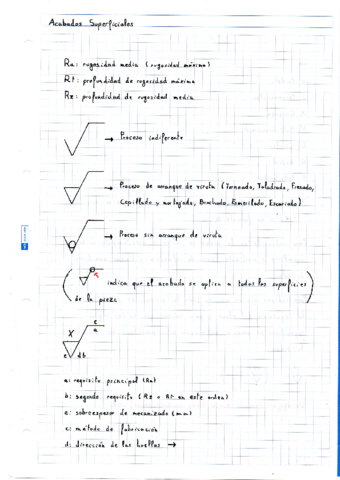 Acabados Superficiales
Ra: rugosidad media (rugosidad máxima)
Rt: profundidad de rugosidad máxima
Rz: profundidad de rugosidad media
→ Proceso indiferente
→ Proceso de arranque de viruta (Torneado, Taladrado, Fresado,
Cepillado y mortajado, Brochado, Esmerilado, Escariado)
→ Proceso sin arranque de viruta
( indica que el acabado se aplica a todas las superficies
de la pieza )
c
a
X
e d b
a: requisito principal (Ra)
b: segundo requisito (Rz o Rt en este orden)
e: sobreespesor de mecanizado (mm)
c: método de fabricación
d: dirección de las huellas →